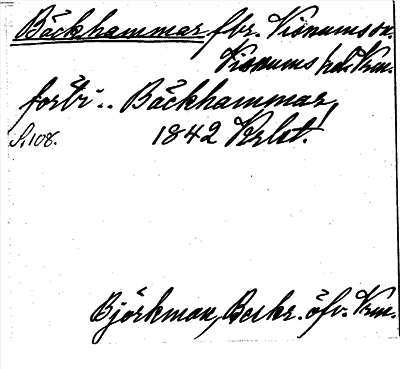 Bäckhammar fbr. Visnums sn.
Visnums hd. Vrm.
förbi .. Bäckhammar,
S. 108. 1842 Verlst!
Björkman, Beskr. öfv. Vrm.